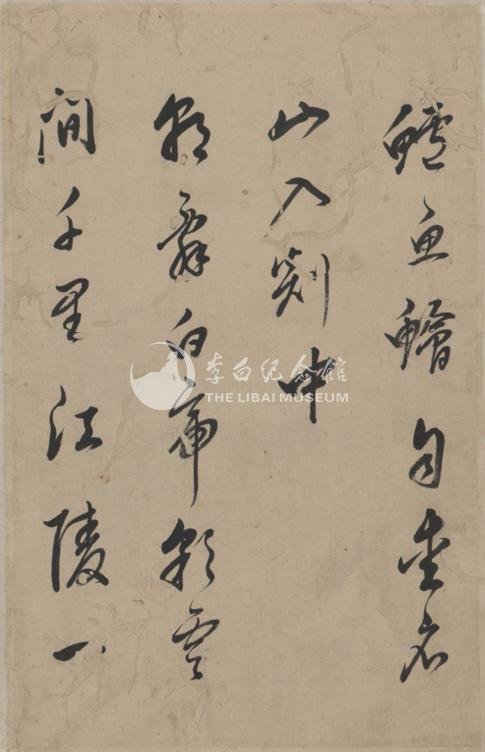 鱸魚鱠自愛名
山入剡中
朝辭白帝彩雲
間千里江陵一
李白纪念館
THE LIBAI MUSEUM